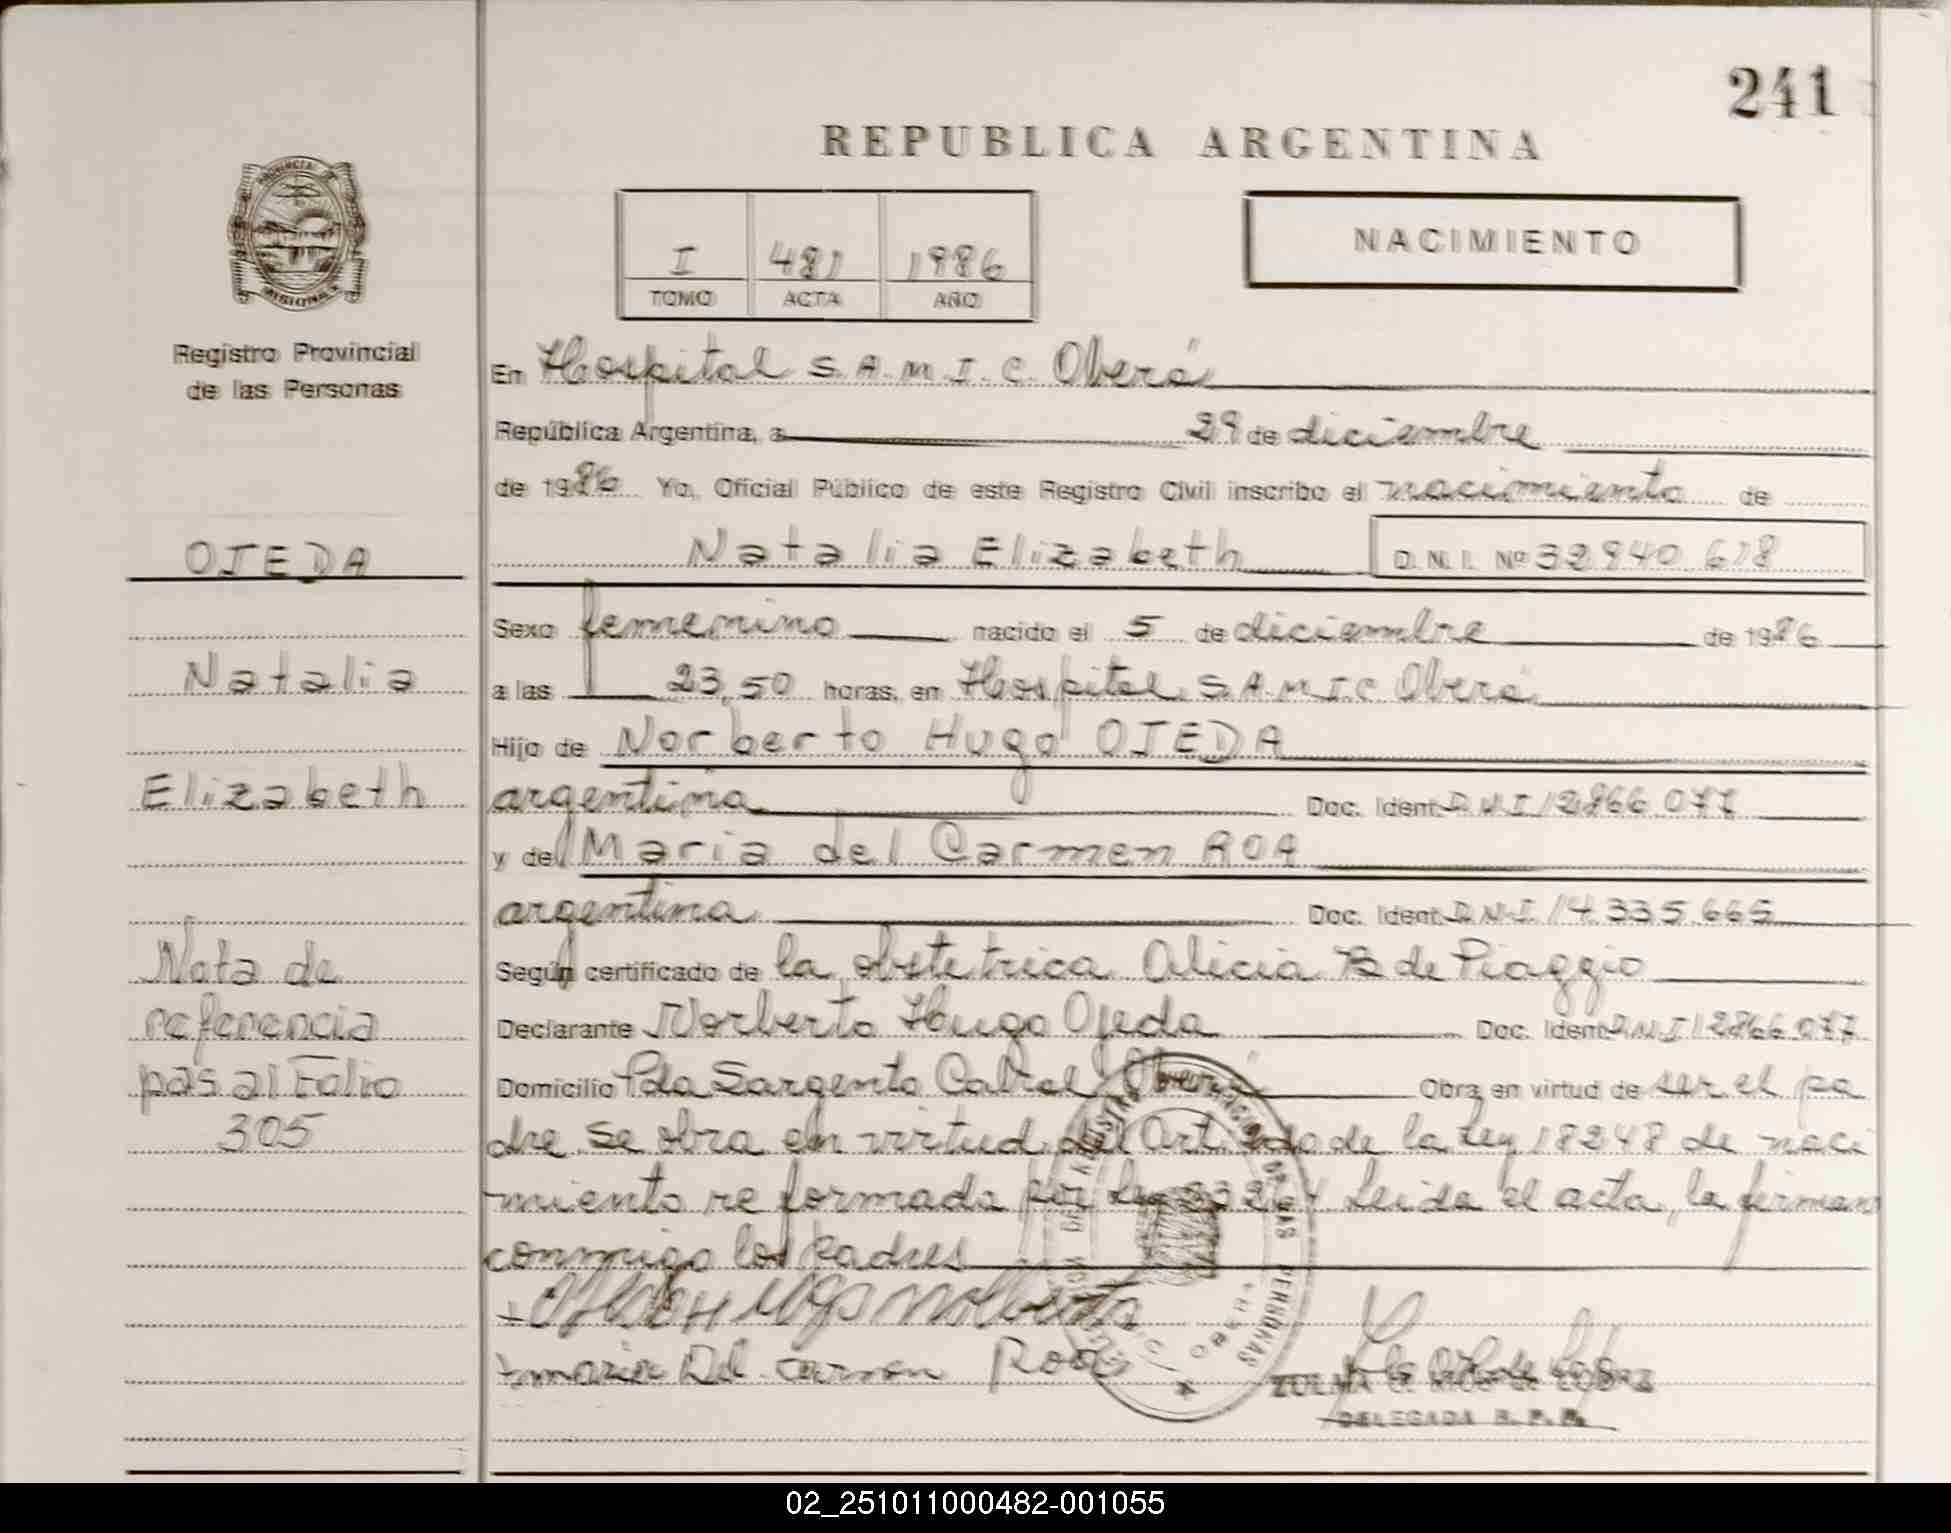 241
REPUBLICA ARGENTINA
I 481 1986
TOMO ACTA AÑO
NACIMIENTO
PROVINCIA DE
MISIONES
Registro Provincial
de las Personas
En Hospital S.A.M.I.C. Oberá
República Argentina, a 29 de diciembre
de 1986 Yo, Oficial Público de este Registro Civil inscribo el nacimiento de
Natalia Elizabeth D.N.I. Nº 32 940 618
Sexo femenino nacido el 5 de diciembre de 1986
a las 23,50 horas, en Hospital S.A.M.I.C Oberá
Hijo de Norberto Hugo OJEDA
argentina Doc. Ident. D.N.I 12866 077
y de Maria del Carmen ROA
argentina Doc. Ident. D.N.I 14 335 665
Según certificado de la obstetrica Alicia B de Piaggio
Declarante Norberto Hugo Ojeda Doc. Ident. D.N.I 12866 077
Domicilio Pda Sargento Cabral Oberá Obra en virtud de ser el pa
dre se obra en virtud del Art. de la Ley 18248 de naci
miento reformada por Ley Leida el acta, la firman
conmigo los padres
Ojeda Hugo Norberto
maria Del carmen Roa
DELEGADA R. P. P.
OJEDA
Natalia
Elizabeth
Nota de
referencia
pas al Folio
305
02_251011000482-001055